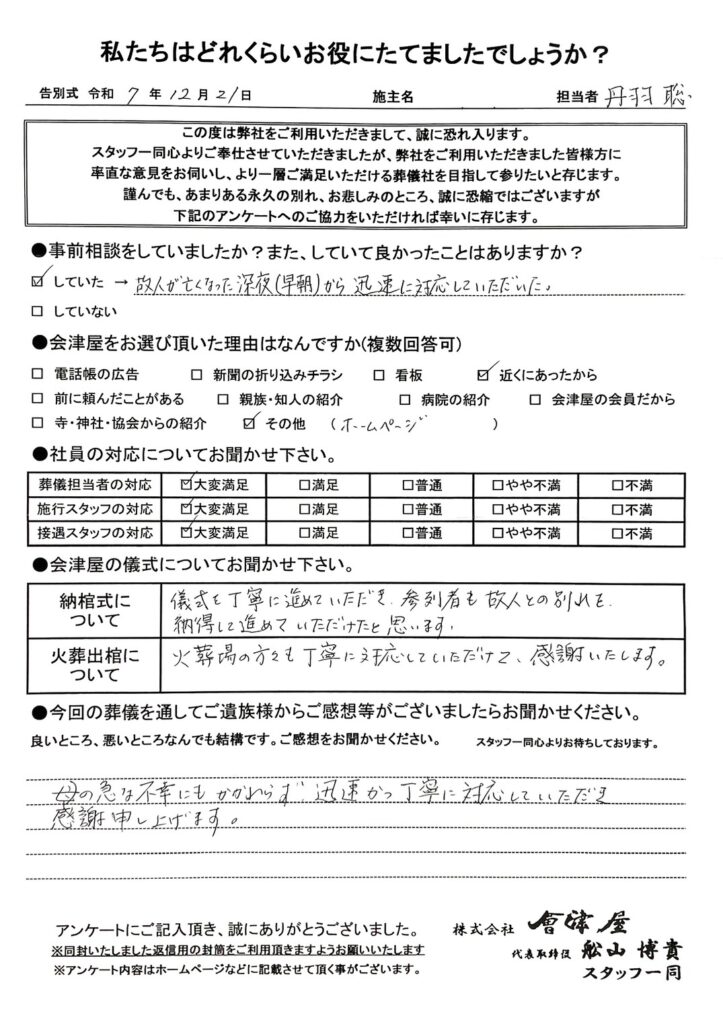 私たちはどれくらいお役にたてましたでしょうか？
告別式 令和 7 年 12 月 21 日 施主名 担当者 丹羽 聡
この度は弊社をご利用いただきまして、誠に恐れ入ります。
スタッフ一同心よりご奉仕させていただきましたが、弊社をご利用いただきました皆様方に
率直な意見をお伺いし、より一層ご満足いただける葬儀社を目指して参りたいと存じます。
謹んでも、あまりある永久の別れ、お悲しみのところ、誠に恐縮ではございますが
下記のアンケートへのご協力をいただければ幸いに存じます。
●事前相談をしていましたか？また、していて良かったことはありますか？
☑ していた → 故人が亡くなった深夜(早朝)から 迅速に対応していただいた。
□ していない
●会津屋をお選び頂いた理由はなんですか(複数回答可)
□ 電話帳の広告 □ 新聞の折り込みチラシ □ 看板 ☑ 近くにあったから
□ 前に頼んだことがある □ 親族・知人の紹介 □ 病院の紹介 □ 会津屋の会員だから
□ 寺・神社・協会からの紹介 ☑ その他 (ホームページ)
●社員の対応についてお聞かせ下さい。
葬儀担当者の対応 ☑大変満足 □満足 □普通 □やや不満 □不満
施行スタッフの対応 ☑大変満足 □満足 □普通 □やや不満 □不満
接遇スタッフの対応 ☑大変満足 □満足 □普通 □やや不満 □不満
●会津屋の儀式についてお聞かせ下さい。
納棺式に
ついて
儀式を丁寧に進めていただき、参列者も故人との別れを、
納得して進めていただけたと思います。
火葬出棺に
ついて
火葬場の方々も丁寧に対応していただけて、感謝いたします。
●今回の葬儀を通してご遺族様からご感想等がございましたらお聞かせください。
良いところ、悪いところなんでも結構です。ご感想をお聞かせください。 スタッフ一同心よりお待ちしております。
母の急な不幸にもかかわらず、迅速かつ丁寧に対応していただき
感謝申し上げます。
アンケートにご記入頂き、誠にありがとうございました。
※同封いたしました返信用の封筒をご利用頂きますようお願いいたします
※アンケート内容はホームページなどに記載させて頂く事がございます。
株式会社 會津屋
代表取締役 舩山 博貴
スタッフ一同